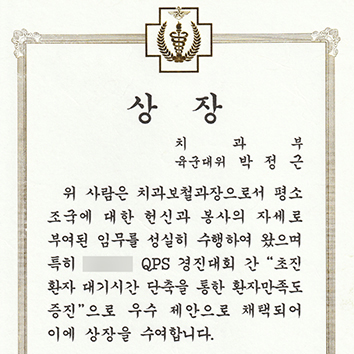 상 장
치 과 부
육군대위 박 정 근
위 사람은 치과보철과장으로서 평소
조국에 대한 헌신과 봉사의 자세로
부여된 임무를 성실히 수행하여 왔으며
특히 QPS 경진대회 간 “초진
환자 대기시간 단축을 통한 환자만족도
증진”으로 우수 제안으로 채택되어
이에 상장을 수여합니다.